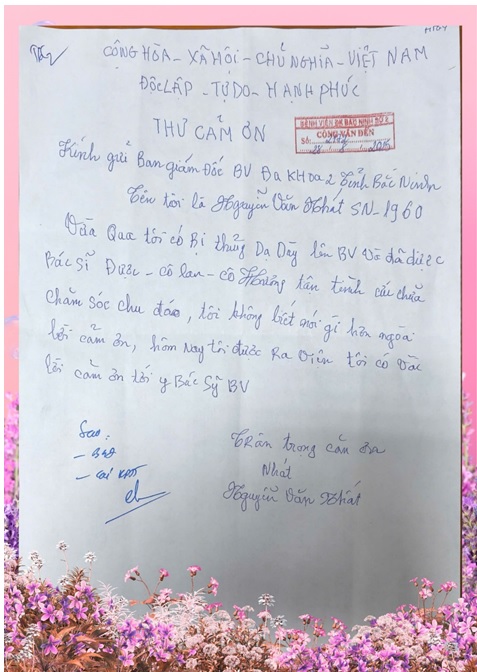 CỘNG HÒA - XÃ HỘI - CHỦ NGHĨA - VIỆT NAM
ĐỘC LẬP - TỰ DO - HẠNH PHÚC
THƯ CẢM ƠN
BỆNH VIỆN ĐK BẮC NINH SỐ 2
CÔNG VĂN ĐẾN
Số:
Kính gửi Ban giám Đốc BV Đa KHoa 2 Tỉnh Bắc Ninh
Tên tôi là Nguyễn Văn Nhất SN-1960
Vừa Qua tôi có Bị thủng Dạ Dày lên BV và đã được
Bác Sĩ Được - cô lan - cô Hương tận tình cứu chữa
chăm sóc chu đáo, tôi không biết nói gì hơn ngoài
lời cảm ơn, hôm nay tôi được Ra viện tôi có vài
lời cảm ơn tới y Bác Sỹ BV
Trân trọng cảm ơn
Nhất
Nguyễn Văn Nhất
Sao:
- BGĐ